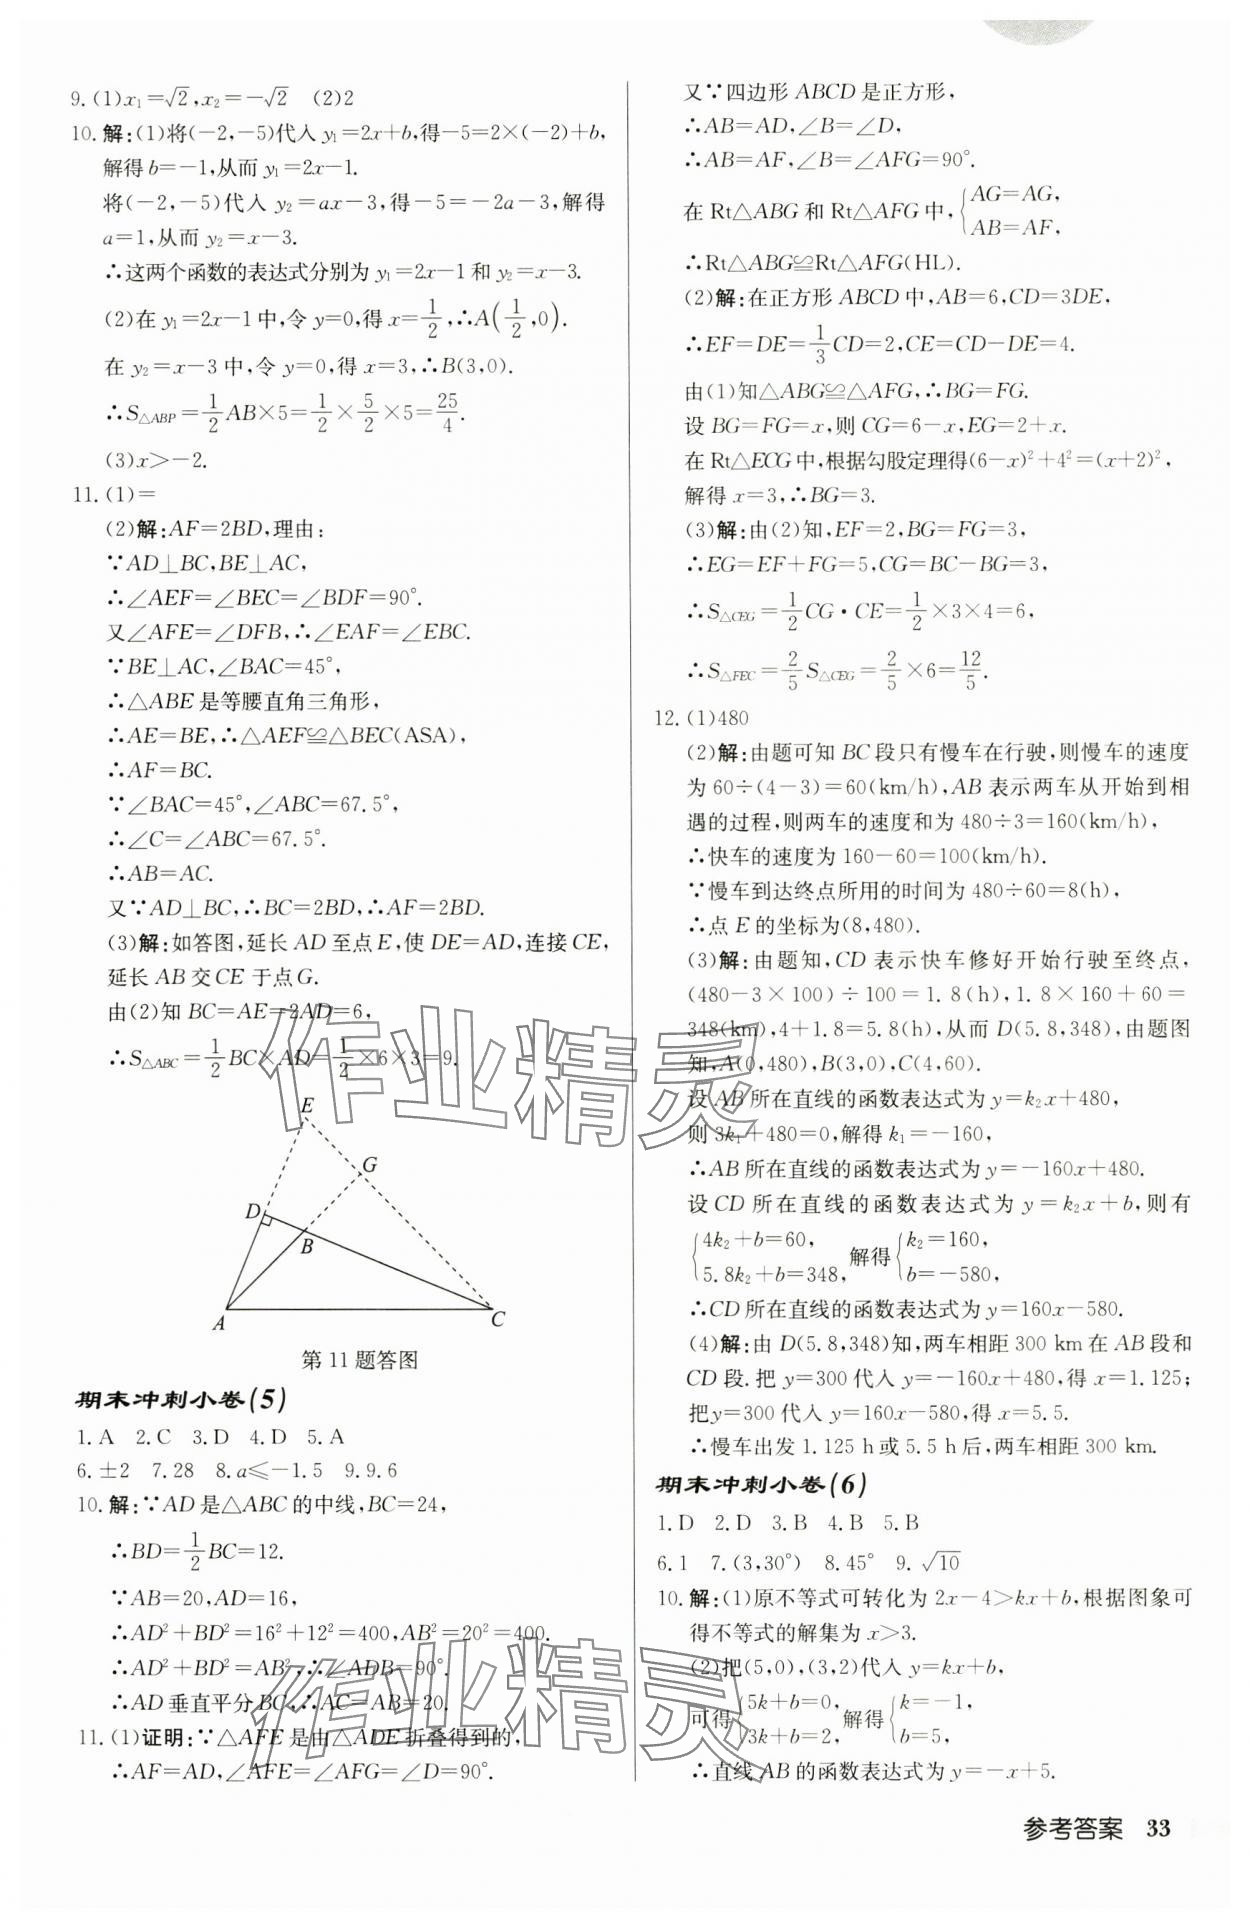 9. (1)x₁=√2,x₂=-√2  (2)2
10. 解:(1)将(-2,-5)代入 y₁=2x+b,得-5=2×(-2)+b,
解得 b=-1,从而 y₁=2x-1.
将(-2,-5)代入 y₂=ax-3,得-5=-2a-3,解得
a=1,从而 y₂=x-3.
∴这两个函数的表达式分别为 y₁=2x-1 和 y₂=x-3.
(2)在 y₁=2x-1 中,令 y=0,得 x=1/2,∴A(1/2,0).
在 y₂=x-3 中,令 y=0,得 x=3,∴B(3,0).
∴S△ABP=1/2 AB×5=1/2×5/2×5=25/4.
(3)x>-2.
11. (1)=
(2)解:AF=2BD,理由:
∵AD⊥BC,BE⊥AC,
∴∠AEF=∠BEC=∠BDF=90°.
又∠AFE=∠DFB,∴∠EAF=∠EBC.
∵BE⊥AC,∠BAC=45°,
∴△ABE 是等腰直角三角形,
∴AE=BE,∴△AEF≌△BEC(ASA),
∴AF=BC.
∵∠BAC=45°,∠ABC=67.5°,
∴∠C=∠ABC=67.5°.
∴AB=AC.
又∵AD⊥BC,∴BC=2BD,∴AF=2BD.
(3)解:如答图,延长 AD 至点 E,使 DE=AD,连接 CE,
延长 AB 交 CE 于点 G.
由(2)知 BC=AE=2AD=6,
∴S△ABC=1/2 BC×AD=1/2×6×3=9.
E
G
D
B
A
C
第 11 题答图
期末冲刺小卷(5)
1. A  2. C  3. D  4. D  5. A
6. ±2  7. 28  8. a≤-1.5  9. 9.6
10. 解:∵AD 是△ABC 的中线,BC=24,
∴BD=1/2 BC=12.
∵AB=20,AD=16,
∴AD²+BD²=16²+12²=400,AB²=20²=400.
∴AD²+BD²=AB²,∴∠ADB=90°.
∴AD 垂直平分 BC,∴AC=AB=20.
11. (1)证明:∵△AFE 是由△ADE 折叠得到的,
∴AF=AD,∠AFE=∠AFG=∠D=90°.
又∵四边形 ABCD 是正方形,
∴AB=AD,∠B=∠D,
∴AB=AF,∠B=∠AFG=90°.
在 Rt△ABG 和 Rt△AFG 中,{AG=AG,
AB=AF,
∴Rt△ABG≌Rt△AFG(HL).
(2)解:在正方形 ABCD 中,AB=6,CD=3DE,
∴EF=DE=1/3 CD=2,CE=CD-DE=4.
由(1)知△ABG≌△AFG,∴BG=FG.
设 BG=FG=x,则 CG=6-x,EG=2+x.
在 Rt△ECG 中,根据勾股定理得(6-x)²+4²=(x+2)²,
解得 x=3,∴BG=3.
(3)解:由(2)知,EF=2,BG=FG=3,
∴EG=EF+FG=5,CG=BC-BG=3,
∴S△CEG=1/2 CG·CE=1/2×3×4=6,
∴S△FEC=2/5 S△CEG=2/5×6=12/5.
12. (1)480
(2)解:由题可知 BC 段只有慢车在行驶,则慢车的速度
为 60÷(4-3)=60(km/h),AB 表示两车从开始到相
遇的过程,则两车的速度和为 480÷3=160(km/h),
∴快车的速度为 160-60=100(km/h).
∵慢车到达终点所用的时间为 480÷60=8(h),
∴点 E 的坐标为(8,480).
(3)解:由题知,CD 表示快车修好开始行驶至终点,
(480-3×100)÷100=1.8(h),1.8×160+60=
348(km),4+1.8=5.8(h),从而 D(5.8,348),由题图
知,A(0,480),B(3,0),C(4,60).
设 AB 所在直线的函数表达式为 y=k₂x+480,
则 3k₁+480=0,解得 k₁=-160,
∴AB 所在直线的函数表达式为 y=-160x+480.
设 CD 所在直线的函数表达式为 y=k₂x+b,则有
{4k₂+b=60, 5.8k₂+b=348, 解得 {k₂=160, b=-580,
∴CD 所在直线的函数表达式为 y=160x-580.
(4)解:由 D(5.8,348)知,两车相距 300 km 在 AB 段和
CD 段. 把 y=300 代入 y=-160x+480,得 x=1.125;
把 y=300 代入 y=160x-580,得 x=5.5.
∴慢车出发 1.125 h 或 5.5 h 后,两车相距 300 km.
期末冲刺小卷(6)
1. D  2. D  3. B  4. B  5. B
6. 1  7. (3,30°)  8. 45°  9. √10
10. 解:(1)原不等式可转化为 2x-4>kx+b,根据图象可
得不等式的解集为 x>3.
(2)把(5,0),(3,2)代入 y=kx+b,
可得{5k+b=0, 3k+b=2, 解得{k=-1, b=5,
∴直线 AB 的函数表达式为 y=-x+5.
参考答案 33
作业精灵
作业精灵